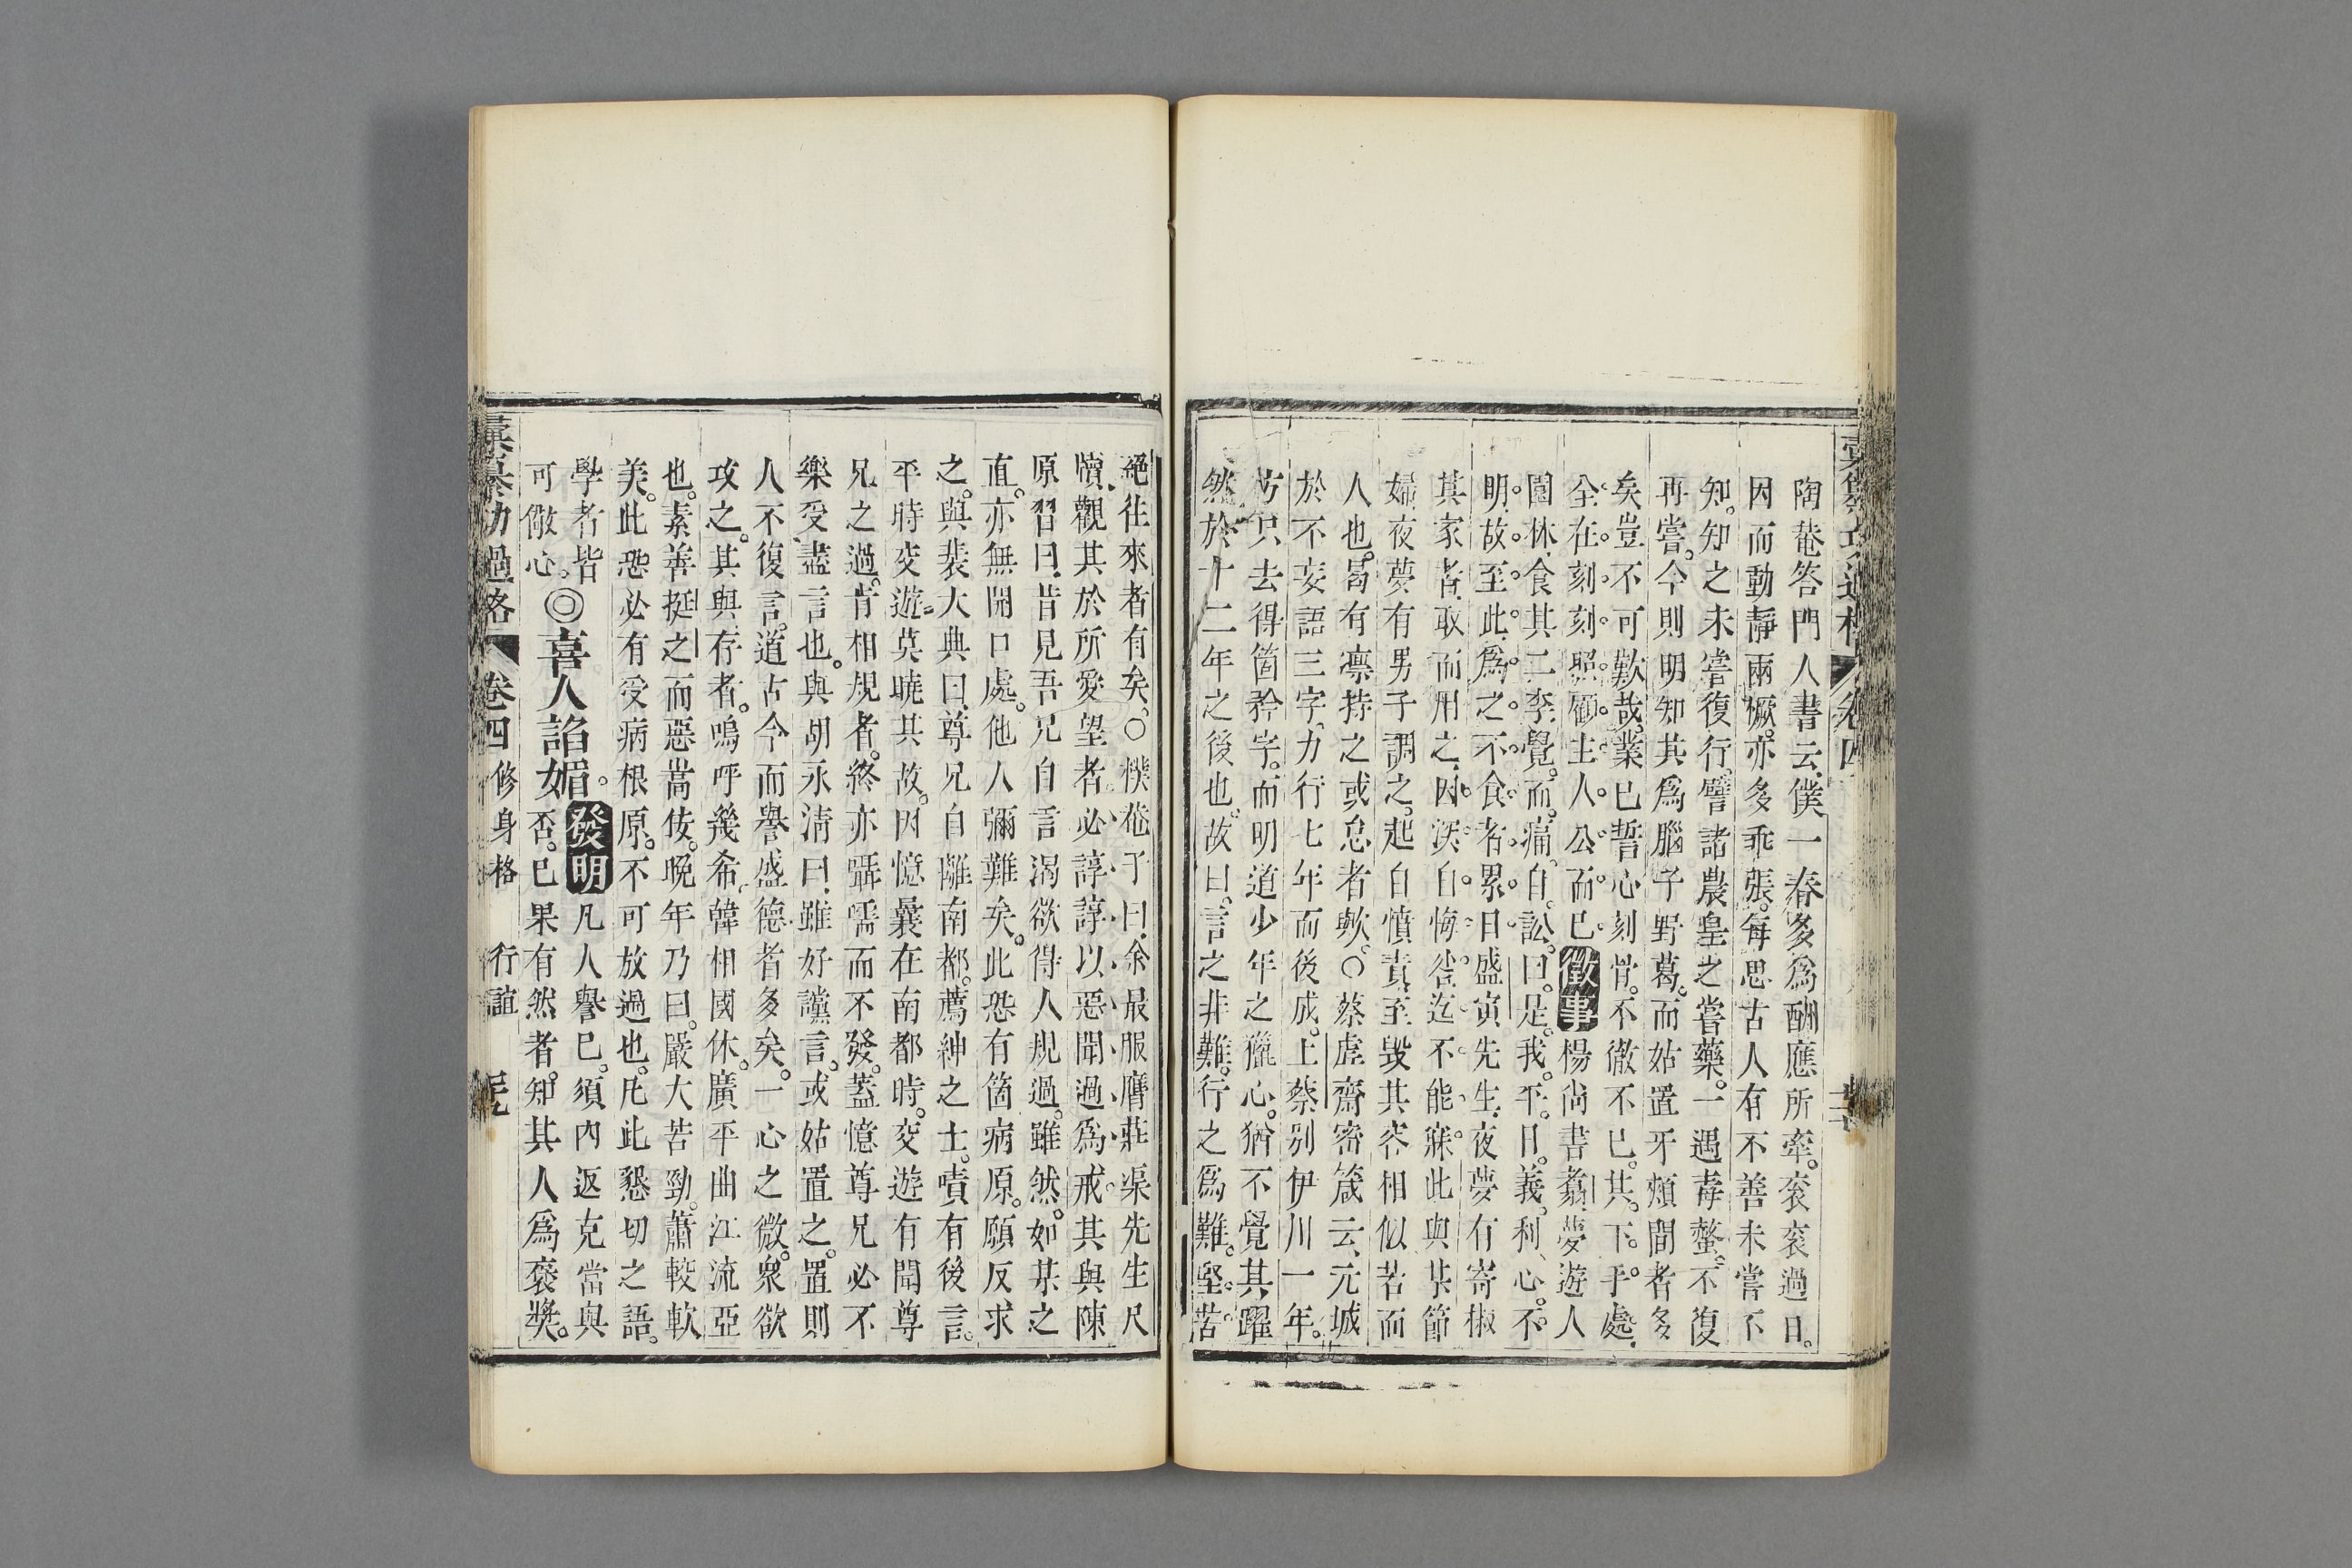 陶菴答門人書云僕一春多爲酬應所牽袞袞過日
因而動靜兩橛亦多乖張每思古人有不善未嘗不
知知之未嘗復行譬諸農皇之嘗藥一遇毒螫不復
再嘗今則明知其爲腦子野葛而姑置牙頰間者多
矣豈不可歎哉業已誓心刻骨不徹不已其下手處
全在刻刻照顧主人公而已 徵事 楊尚書翥夢遊人
園林食其二李覺而痛自訟曰是我平日義利心不
明故至此爲之不食者累日盛寅先生夜夢有寄椒
其家者取而用之因深自悔咎迄不能寐此與某節
婦夜夢有男子調之起自憤責至毀其容相似苦而
人也曷有凛持之或怠者歟○蔡虛齋密箴云元城
於不妄語三字力行七年而後成上蔡别伊川一年
只去得箇矜字而明道少年之獵心猶不覺其躍
然於十二年之後也故曰言之非難行之爲難堅苦
絕往來者有矣○樸菴子曰余最服膺莊渠先生尺
牘觀其於所愛望者必諄諄以惡聞過爲戒其與陳
原習曰昔見吾兄自言渴欲得人規過雖然如某之
直亦無開口處他人彌難矣此恐有箇病原願反求
之與裴大典曰尊兄自離南都薦紳之士嘖有後言
平時交遊莫曉其故因憶曩在南都時交遊有聞尊
兄之過肯相規者終亦囁嚅而不發蓋憶尊兄必不
樂受盡言也與胡永淸曰雖好讜言或姑置之置則
人不復言道古今而譽盛德者多矣一心之微衆欲
攻之其與存者嗚呼幾希韓相國休廣平曲江流亞
也素善挺之而惡嵩伎晩年乃曰嚴大苦勁蕭較軟
美此恐必有受病根原不可放過也凡此懇切之語
學者皆可儆心◎喜人諂媚否 發明 凡人譽已須內返克當與
已果有然者知其人爲褒奬
彙纂功過格 卷四 修身格 行誼